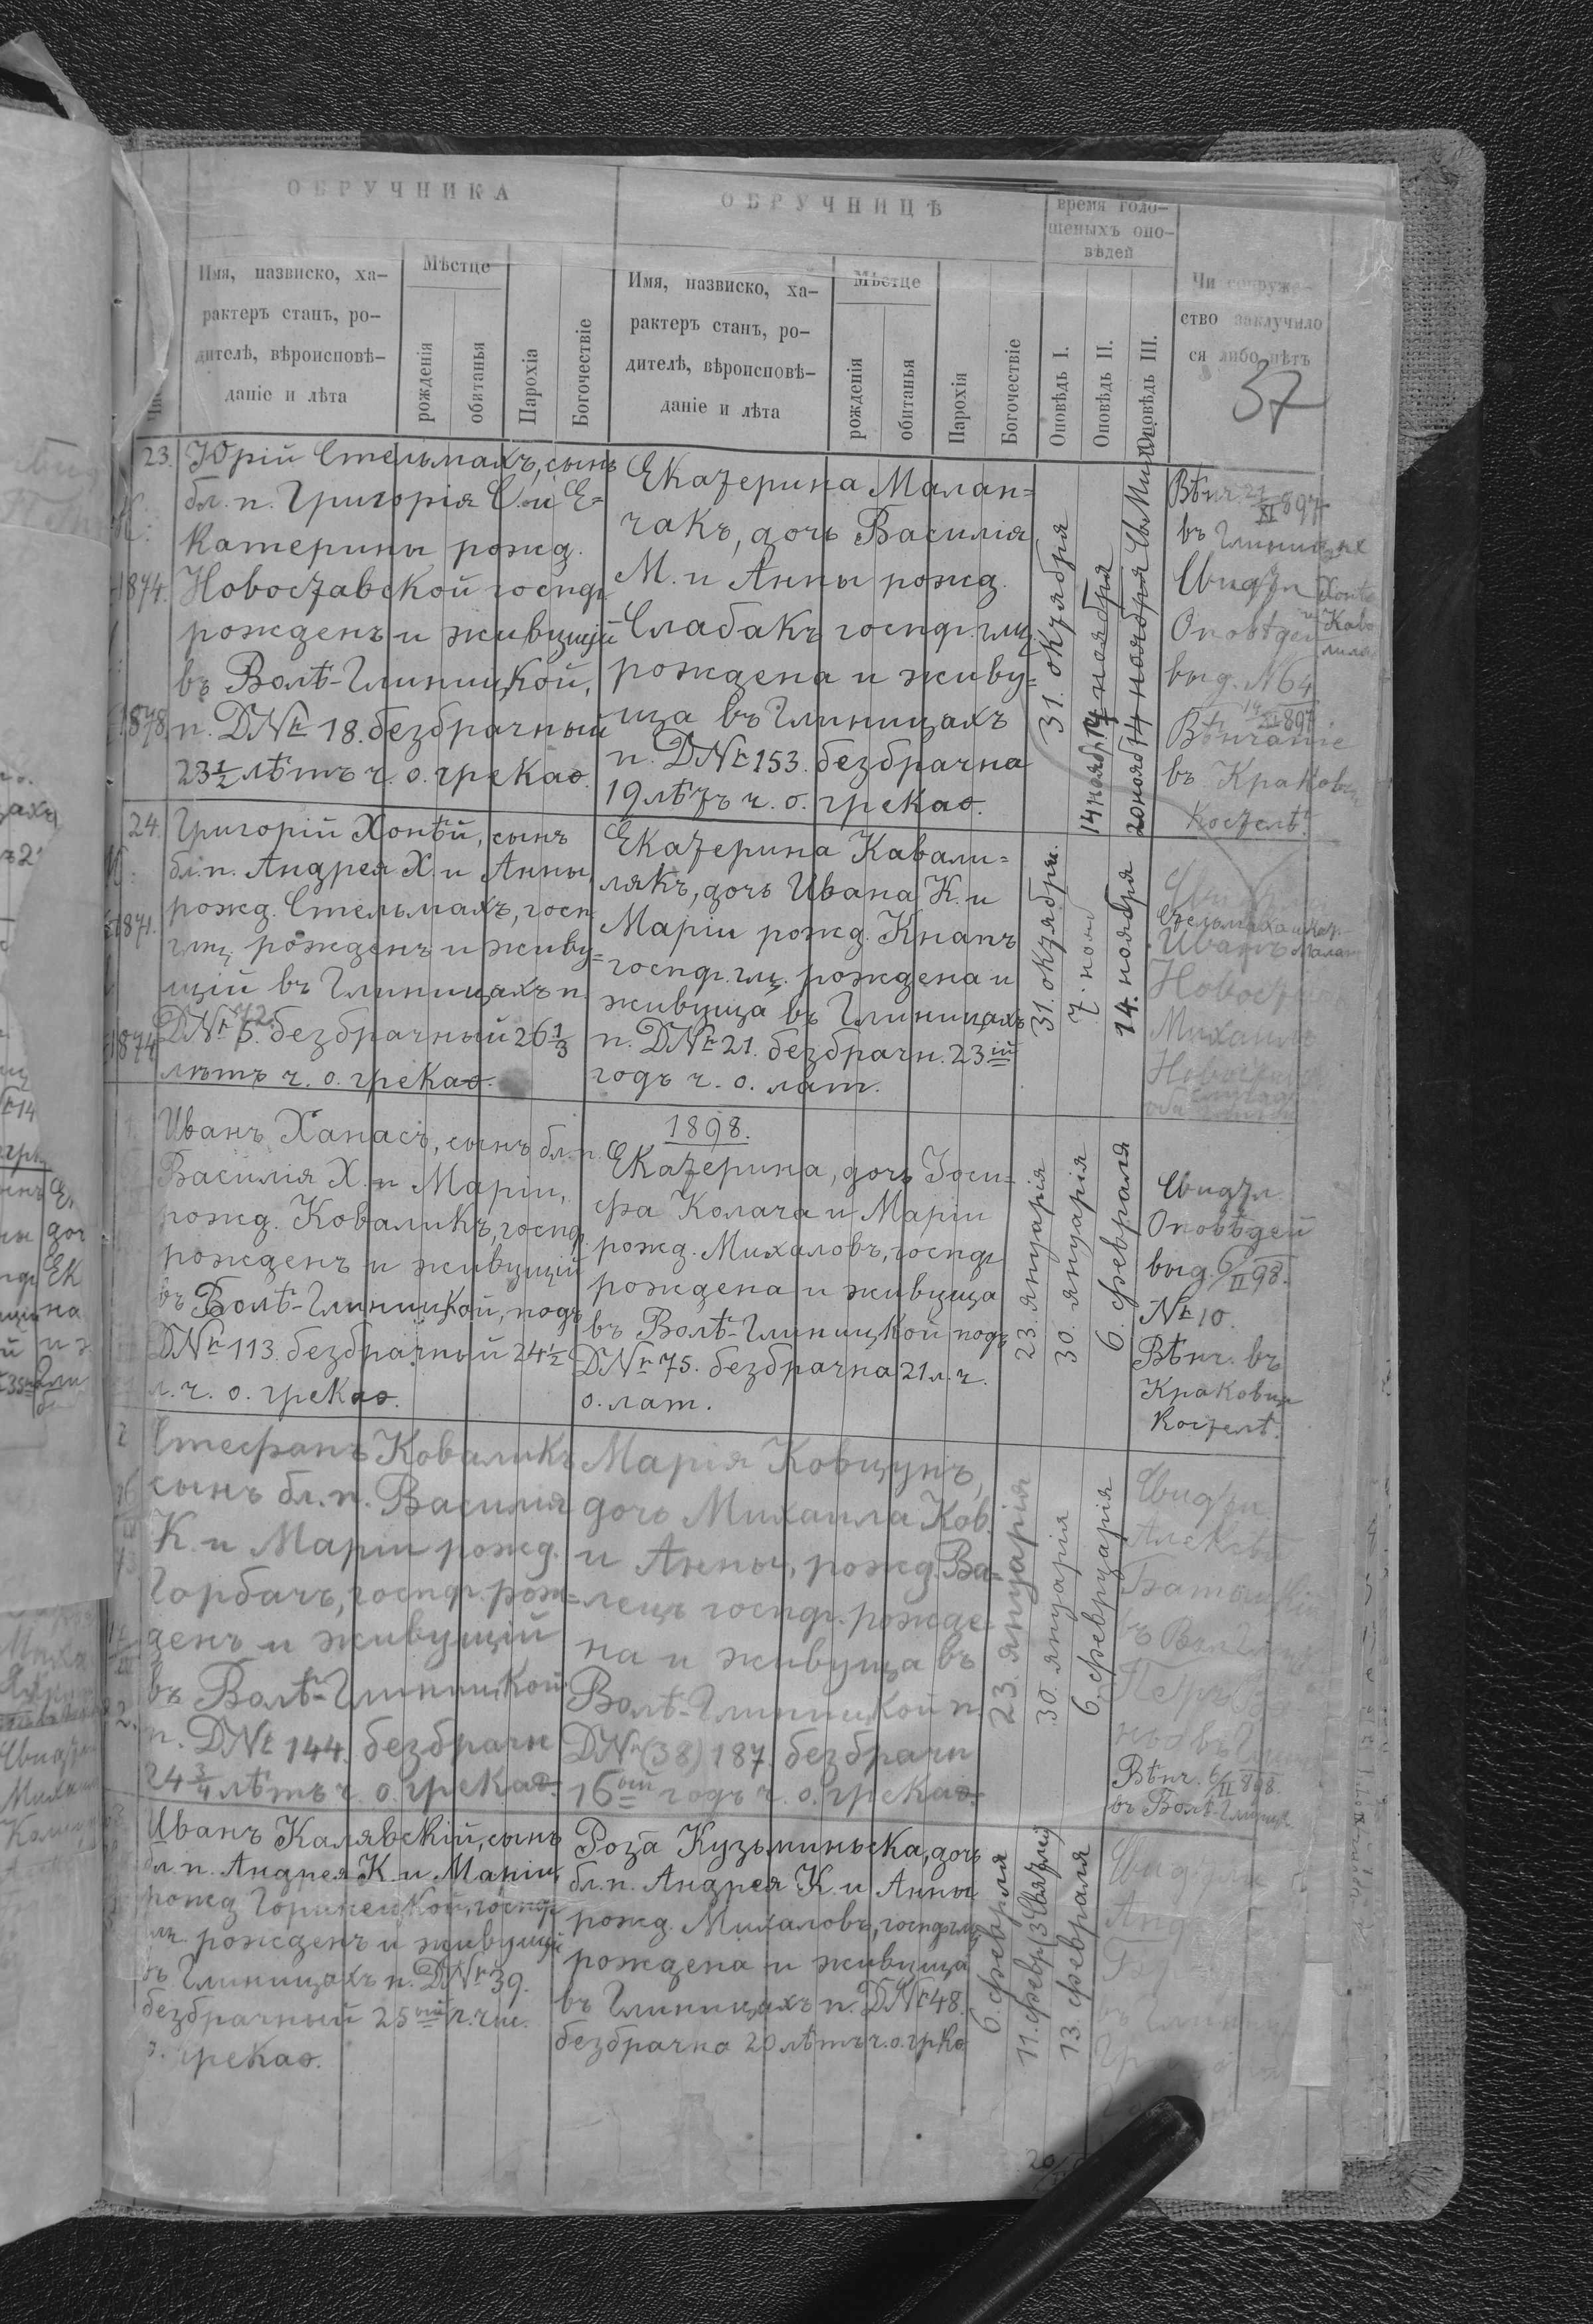 ОБРУЧНИКА
ОБРУЧНИЦѢ
время голо-
шеныхъ опо-
вѣдей
Имя, назвиско, ха-
рактеръ станъ, ро-
дителѣ, вѣроисповѣ-
даніе и лѣта
Мѣстце
рожденія
обитанья
Парохія
Богочестіе
Имя, назвиско, ха-
рактеръ станъ, ро-
дителѣ, вѣроисповѣ-
даніе и лѣта
Мѣстце
рожденія
обитанья
Парохія
Богочестіе
Оповѣдь I.
Оповѣдь II.
Оповѣдь III.
Чи супруже-
ство заключило
ся либо нѣтъ
37
23. Юрій Стельмахъ, сынъ
бл. п. Григорія С. и Е=
катерины рожд.
1874. Новоставской госпдр
рожденъ и живущій
въ Волѣ-Глиницкой,
1878. п. DNr 18. безбрачный
23 1/2 лѣтъ ч. о. грекао.
Екатерина Малан=
чакъ, дочь Василія
М. и Анны рожд.
Слабакъ госпдр. глц.
рождена и живу=
ща въ Глиницахъ
п. DNr 153. безбрачна
19 лѣтъ ч. о. грекао.
31. октября
14 ноября
20 нояб 14 ноября
Вѣнч. 21/XI 897
въ Глиницах
Свидѣт
Оповѣдей
выд. N 64
14/XI 897
Вѣнчаніе
въ Краковци
Костелѣ.
24. Григорій Хопѣй, сынъ
бл. п. Андрея Х. и Анны
рожд. Стельмахъ, госп.
1871. глц. рожденъ и живу=
щій въ Глиницахъ п.
1874 DNr 5. безбрачный 26 1/3
лѣтъ ч. о. грекао.
Екатерина Кавали=
лякъ, дочь Ивана К. и
Маріи рожд. Кнапъ
госпдр. глц. рождена и
живуща въ Глиницахъ
п. DNr 21. безбрачн. 23ій
годъ ч. о. лат.
31. октября.
7. нояб
14. ноября
Иванъ
Михаилъ
1898.
1. Иванъ Ханасъ, сынъ бл. п.
Василія Х. и Маріи,
рожд. Коваликъ, госпд.
рожденъ и живущій
въ Волѣ-Глиницкой, подъ
DNr 113. безбрачный 24 1/2
л. ч. о. грекао.
Екатерина, дочь Іоси=
фа Колача и Маріи
рожд. Михаловъ, госпдр
рождена и живуща
въ Волѣ-Глиницкой подъ
DNr 75. безбрачна 21 л. ч.
о. лат.
23. януарія
30. януарія
6. февраля
Свидѣт
Оповѣдей
выд. 6/II 98.
Nr 10.
Вѣнч. въ
Краковци
Костелѣ.
2 Стефанъ Коваликъ
сынъ бл. п. Василія
К. и Маріи рожд.
Горбачъ, госпдр. рож=
денъ и живущій
въ Волѣ-Глиницкой
п. DNr 144. безбрачн
24 3/4 лѣтъ ч. о. грекао.
Марія Ковцунъ,
дочь Михаила Ков.
и Анны, рожд. Ва=
лецъ госпдр. рожде-
на и живуща въ
Волѣ-Глиницкой п.
DNr (38) 187. безбрачн
16ый годъ ч. о. грекао.
23. януарія
30. януарія
6. февруарія
Свидѣт.
Вѣнч. 6/II 898.
въ Волѣ-Глинцк.
Иванъ Калявскій, сынъ
бл. п. Андрея К. и Маріи
рожд Горинецкой, госпдр
рожденъ и живущій
въ Глиницахъ п. DNr 39.
безбрачный 25ый
грекао.
Роза Кузьминьска, дочь
бл. п. Андрея К. и Анны
рожд. Михаловъ, госпдр глц
рождена и живуща
въ Глиницахъ п. DNr 48.
безбрачна 20 лѣтъ ч. о. грко
6. февраля
11. февр
13. февраля